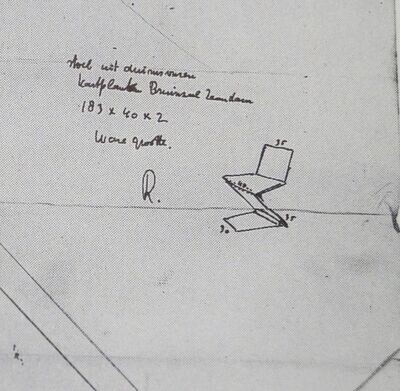 stoel uit duimsvuren
kastplanken Bruinzeel Zaandam
183 x 40 x 2
Ware grootte.
R.
35
40
35
30